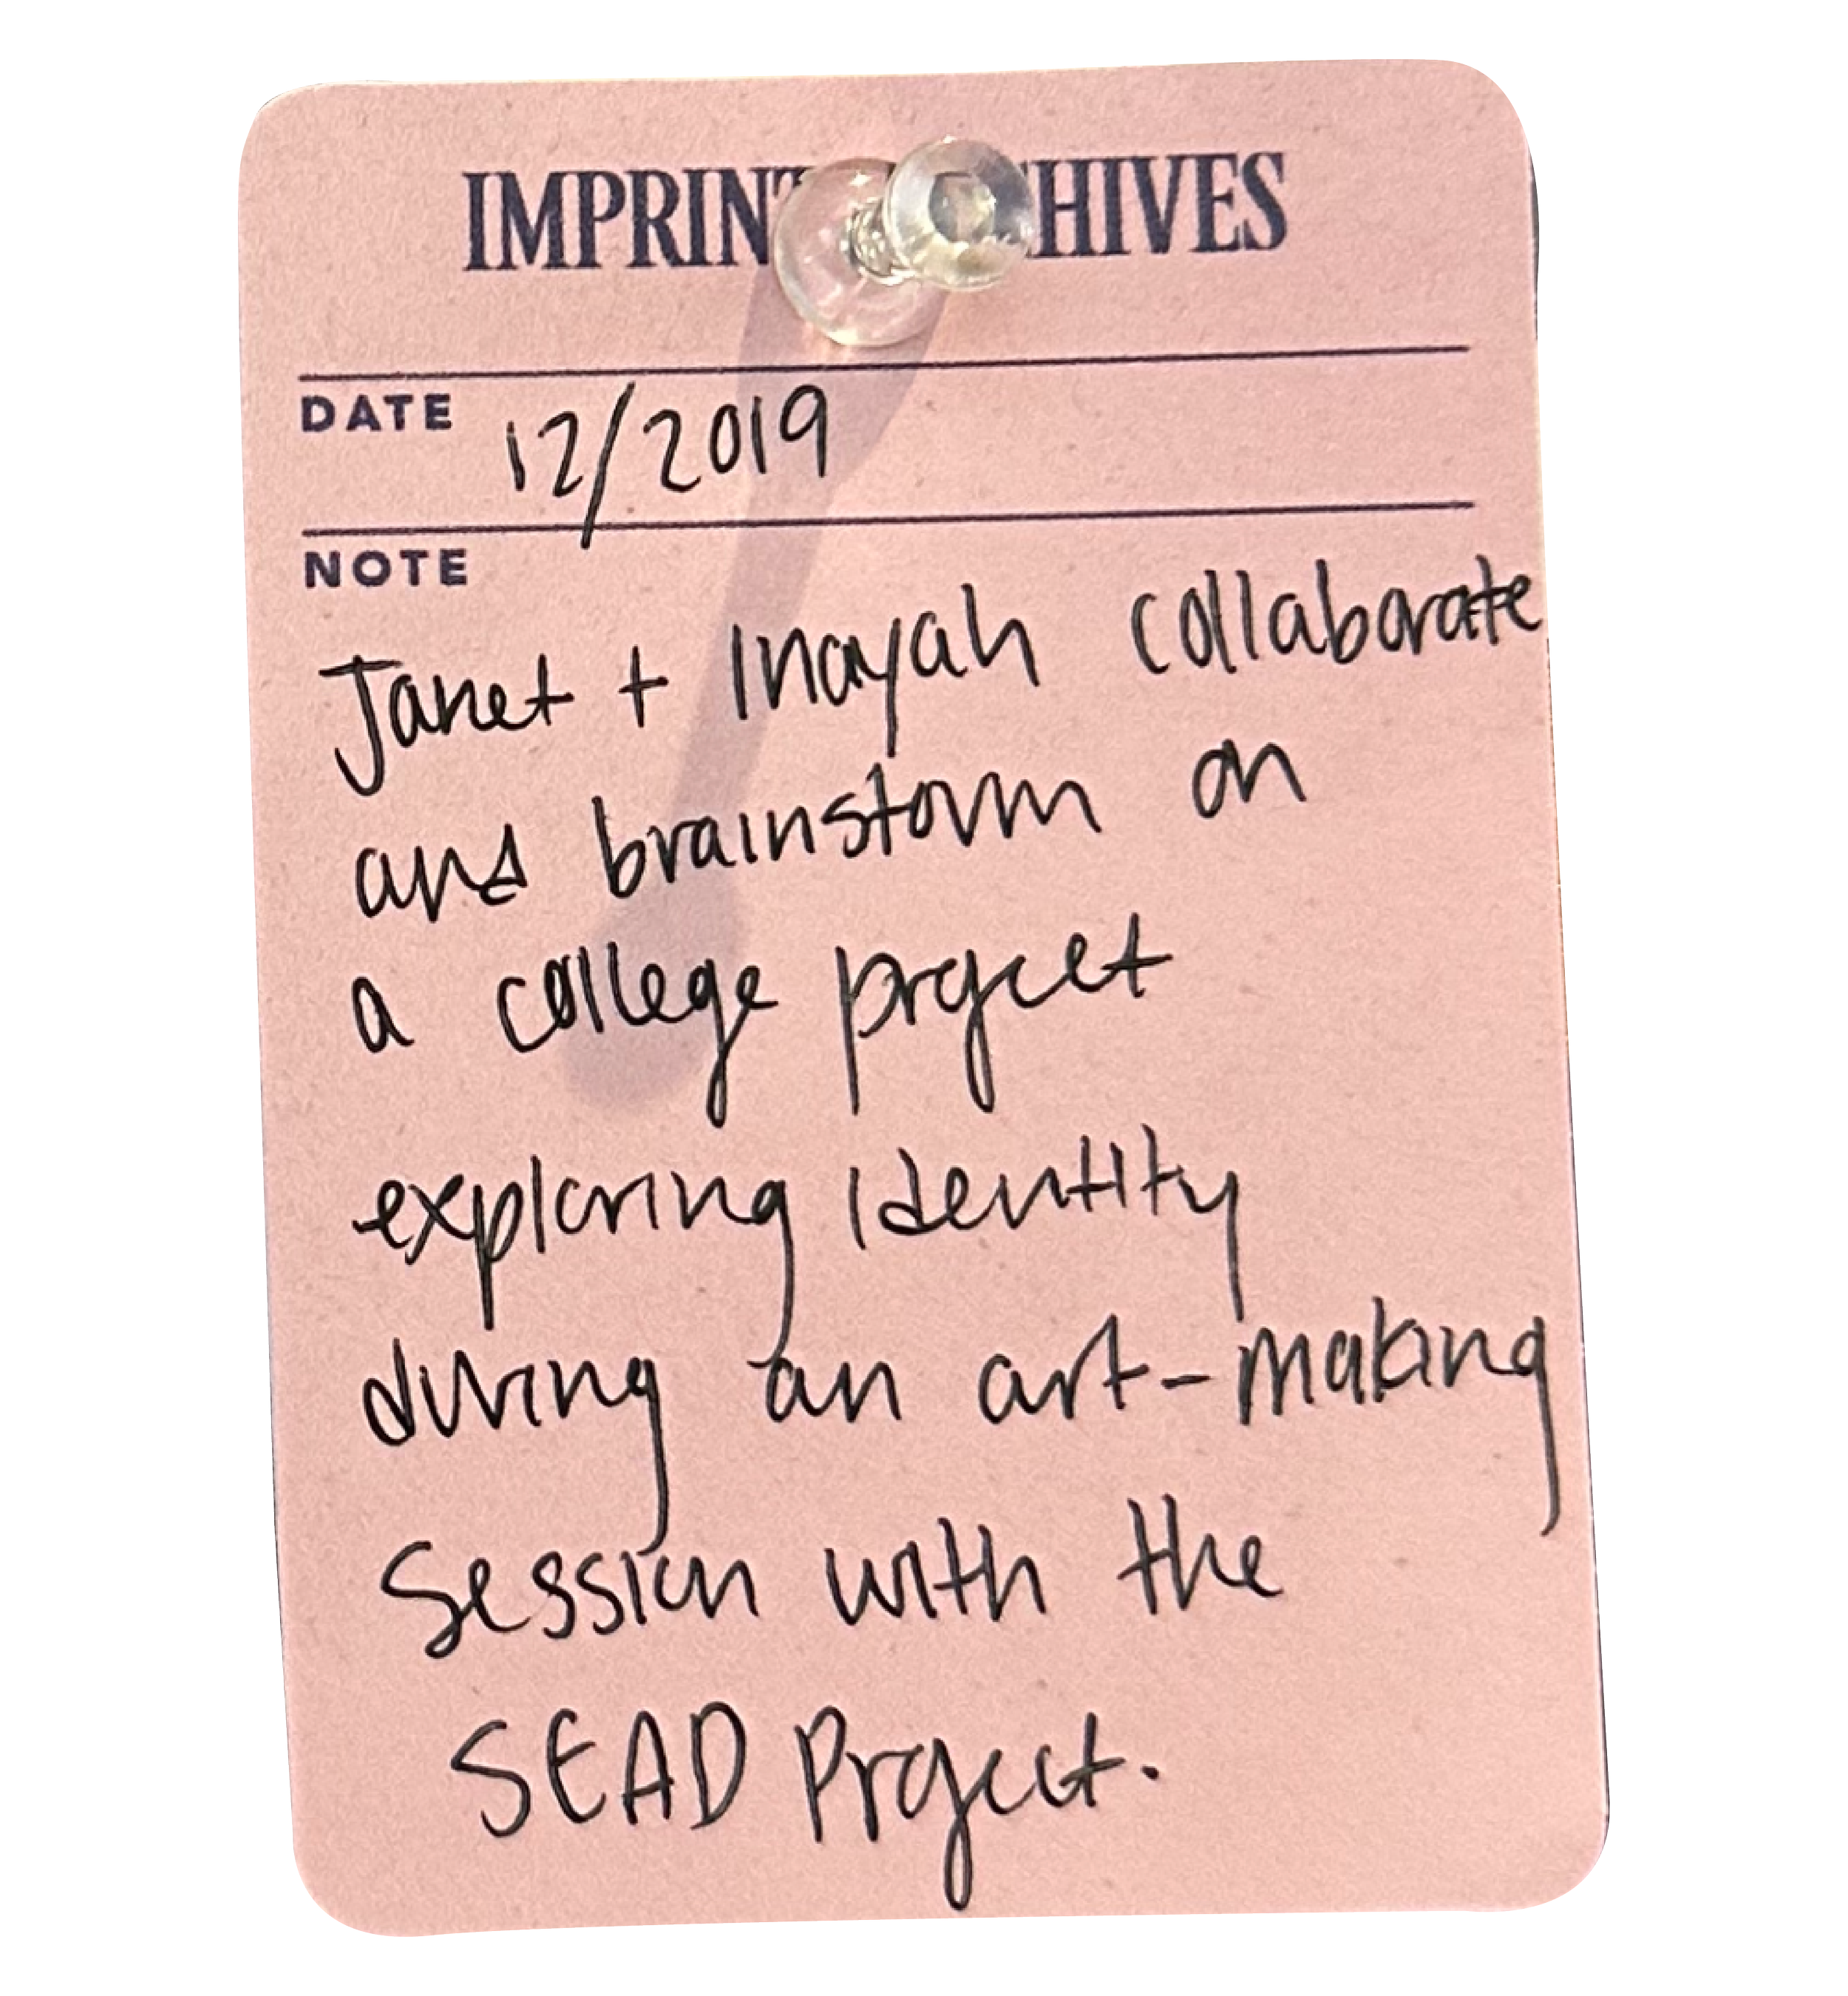 IMPRINT ARCHIVES
DATE 12/2019
NOTE
Janet + Inayah collaborate
and brainstorm on
a college project
exploring identity
during an art-making
session with the
SEAD Project.